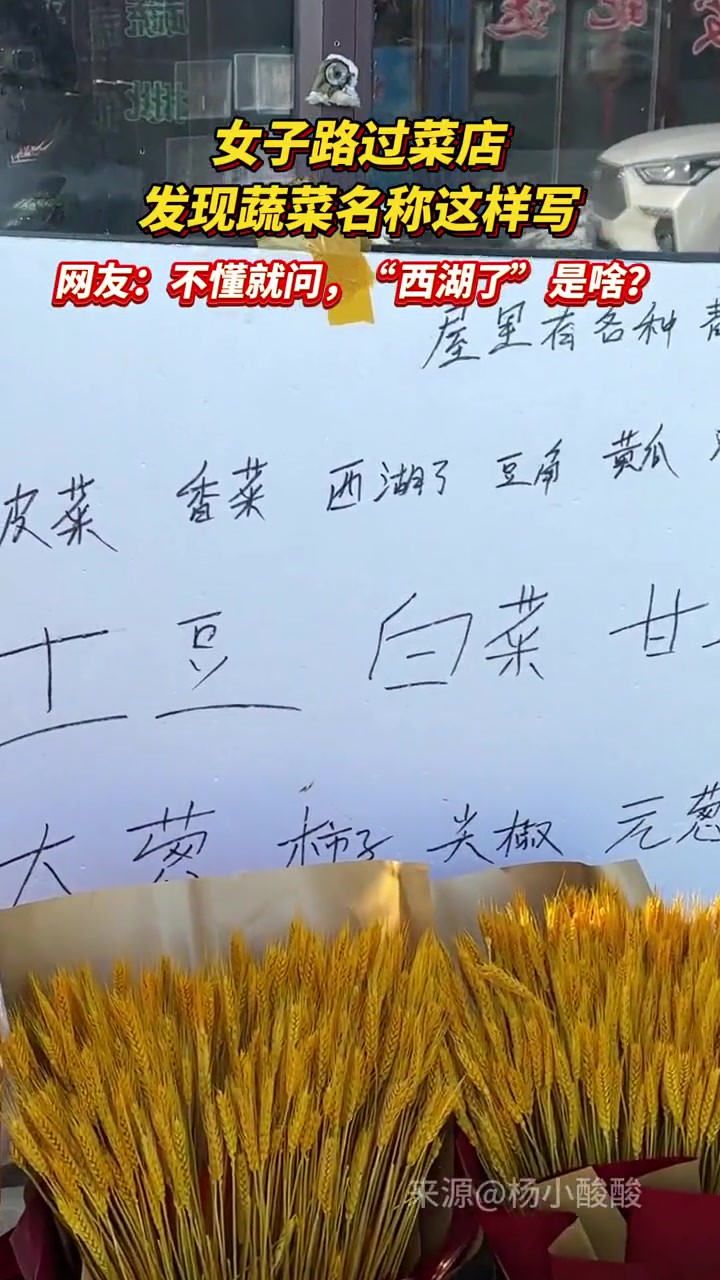 女子路过菜店
发现蔬菜名称这样写
网友：不懂就问，“西湖了”是啥？
屋里有各种
皮菜 香菜 西湖了 豆角 黄瓜
土豆 白菜 甘
大葱 柿子 尖椒 元葱
来源@杨小酸酸